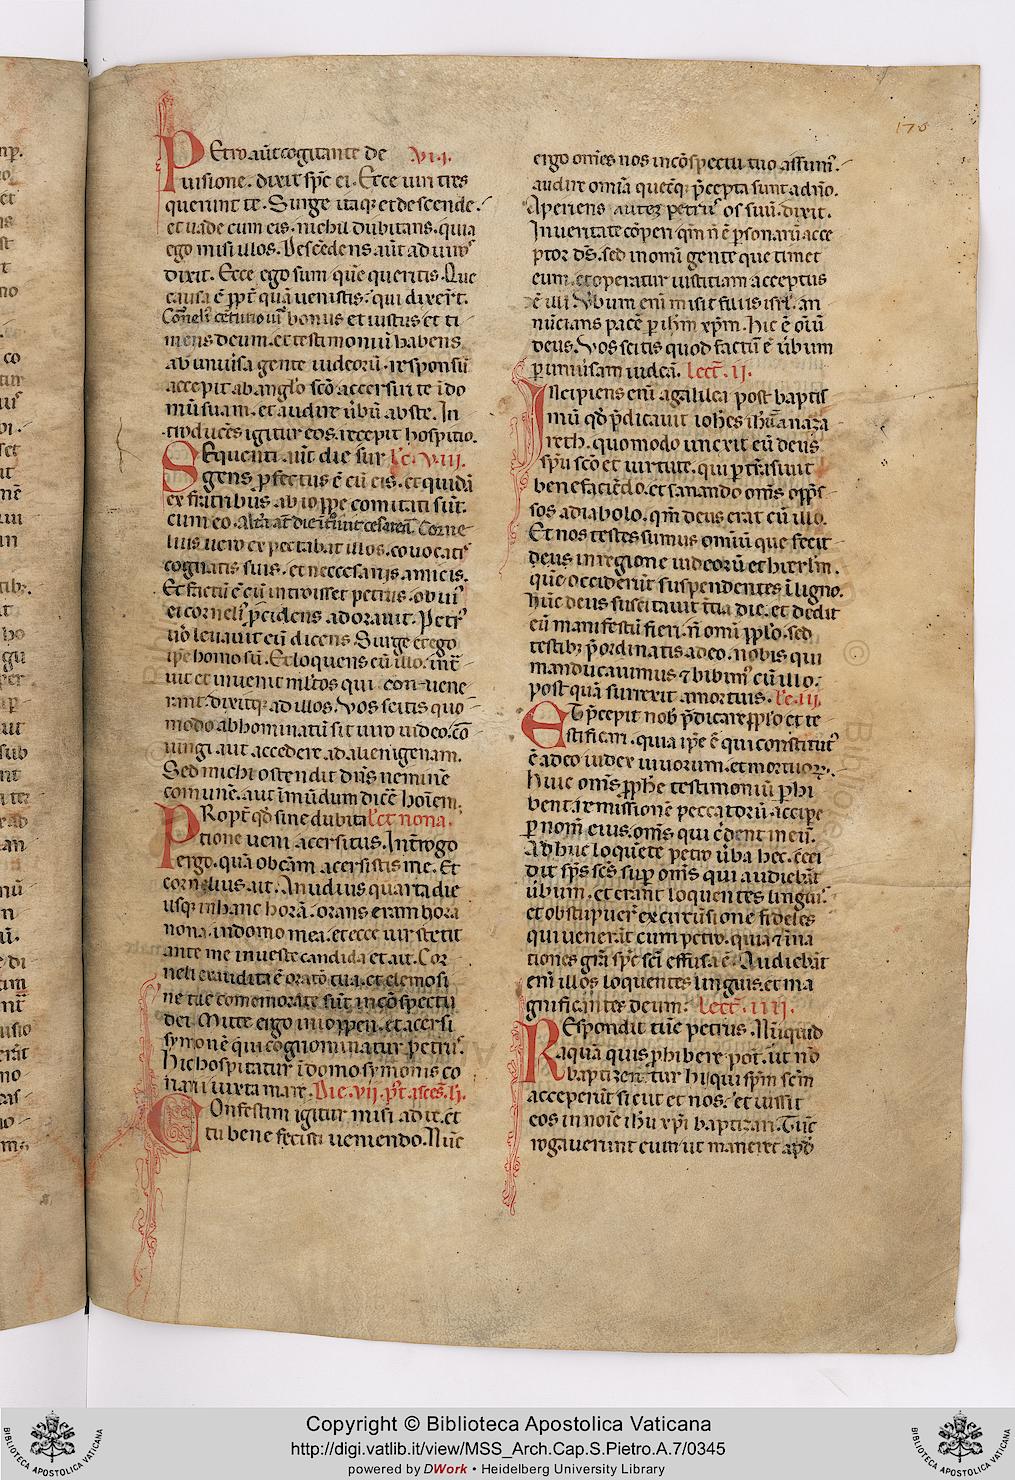 170
Petro aut̄ cogitante de .VII.
uisione. dixit sp̄c ei. Ecce uiri tres
querunt te. Surge itaq; et descende.
et uade cum eis. nichil dubitans. quia
ego misi illos. Descēdens aūt ad uiros
dixit. Ecce ego sum quē queritis. Que
causa ē ꝓpt̄ quā uenistis. qui dixer̄t.
Cornelī centurio uir̄ bonus et iustus et ti
mens deum. et testimoniū habens
ab uniūsa gente iudeorū. responsū
accepit ab anglo sc̄o accersiri te ī do
mū suam. et audire ūbū abs te. In
troducēs igitur eos. recepit hospitio.
Sequenti aūt die sur lc̄. VIII.
gens ꝓfectus ē cū eis. et quidā
ex fratribus ab ioppe comitati sūt
cum eo. Altā at̄ die ītūnit cesaream. Corne
lius uero expectabat illos. cōuocatis
cognatis suis. et neccesariis amicis.
Et factū ē cū introisset petrus. obuiꝰ
ei cornelī p̄cidens adorauit. Petrꝰ
ūo leuauit eū dicens. Surge et ego
ip̄e homo sū. Et loquens cū illo. int̄
uit et inuenit ml̄tos qui conuene
rant. dixitq; ad illos. Vos scitis quo
modo abhominatū sit uiro iudeo. cō
iungi aut accedere ad alienigenam.
Sed michi ostendit dn̄s neminē
comunē. aut īmūdum dicē hoīem.
Propt̄ qd̄ sine dubita lect̄ nona.
tione ueni acersitus. Int̄rogo
ergo. quā ob cām acersistis me. Et
cornelius ait. A nudius quarta die
usq; in hanc horā. orans eram hora
nona. in domo mea. et ecce uir stetit
ante me in ueste candida et ait. Cor
neli exaudita ē oratō tua. et elemosi
ne tue comemorate sūt in cōspectu
dei. Mitte ergo in ioppen. et acersi
symonē qui cognominatur petrus.
hic hospitatur ī domo symonis co
riarii iuxta mare. Die. vii. pt̄ asces̄. li.
Confestim igitur misi ad te. et
tu bene fecisti ueniendo. Nūc
ergo om̄es nos in cōspectu tuo assumꝰ.
audire omīa quecūq; p̄cepta sunt a dn̄o.
Aperiens autez petrus os suū. dixit.
In ueritate cōperi qm̄ n̄ ē ꝑsonarū acce
ptor ds̄. sed in omī gente que timet
eum. et operatur iustitiam acceptus
ē illi. Verbum enī misit filiis isrl̄. an
nūcians pacē ꝑ ih̄m xp̄m. hic ē oīū
deus. Vos scitis quod factū ē ūbum
ꝑ uniūsam iudeā. lect̄. II.
Incipiens enī a galilea post baptis
mū qd̄ p̄dicauit ioh̄es ih̄m a naza
reth. quomodo unexit eū deus
spū sc̄o et uirtute. qui ꝑ trāsiuit
benefaciēdo. et sanando om̄s opp̄s
sos a diabolo. qm̄ deus erat cū illo.
Et nos testes sumus omīū que fecit
deus in regione iudeorū et hierl̄m.
quē occiderūt suspendentes ī ligno.
hūc deus suscitauit tt̄ia die. et dedit
eū manifestū fieri. n̄ omī pp̄lo. sed
testib; p̄ordinatis a deo. nobis qui
manducauimus ⁊ bibimꝰ cū illo.
post quā surrexit a mortuis. lc̄. III.
Et p̄cepit nob̄ p̄dicare pp̄lo et te
stificari. quia ip̄e ē qui constitutꝰ
ē a deo iudex uiuorum. et mortuoꝝ.
huic om̄s ꝓph̄e testimoniū ꝑhi
bent. remissionē peccatorū. accipe
ꝑ nom̄ eius. om̄s qui c̄dent in eū.
Adhuc loquēte petro ūba hec. ceci
dit sp̄s sc̄s suꝑ om̄s qui audiebāt
ūbum. et erant loquentes linguis.
et obstupuer̄ ex circūsione fideles
qui uenerāt cum petro. quia ⁊ ī na
tiones grā sp̄c sc̄i effusa ē. Audiebāt
enī illos loquentes linguis. et ma
gnificantes deum. lect̄. IIII.
Respondit tūc petrus. Nūquid
aquā quis ꝓhibere pot̄. ut nō
baptizentur hi qui sp̄m sc̄m
acceperūt sicut et nos. et iussit
eos in noīe ih̄u xp̄i baptizari. Tūc
rogauerunt eum ut maneret apd̄
BIBLIOTECA APOSTOLICA VATICANA
Copyright © Biblioteca Apostolica Vaticana
http://digi.vatlib.it/view/MSS_Arch.Cap.S.Pietro.A.7/0345
powered by DWork • Heidelberg University Library
BIBLIOTECA APOSTOLICA VATICANA